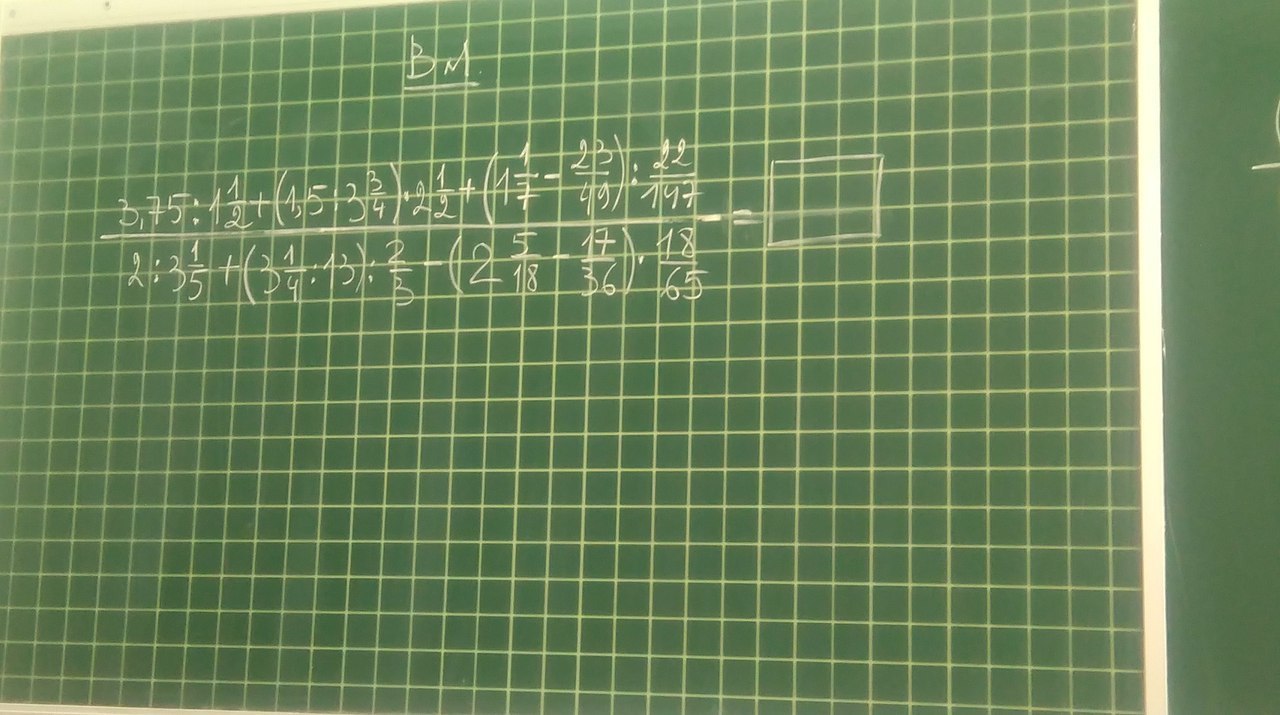 В М.
3,75 : 1 1/2 + (1,5 : 3 3/4) · 2 1/2 + (1 1/7 - 23/49) : 22/147
2 : 3 1/5 + (3 1/4 : 13) : 2/3 - (2 5/18 - 17/36) · 18/65 =